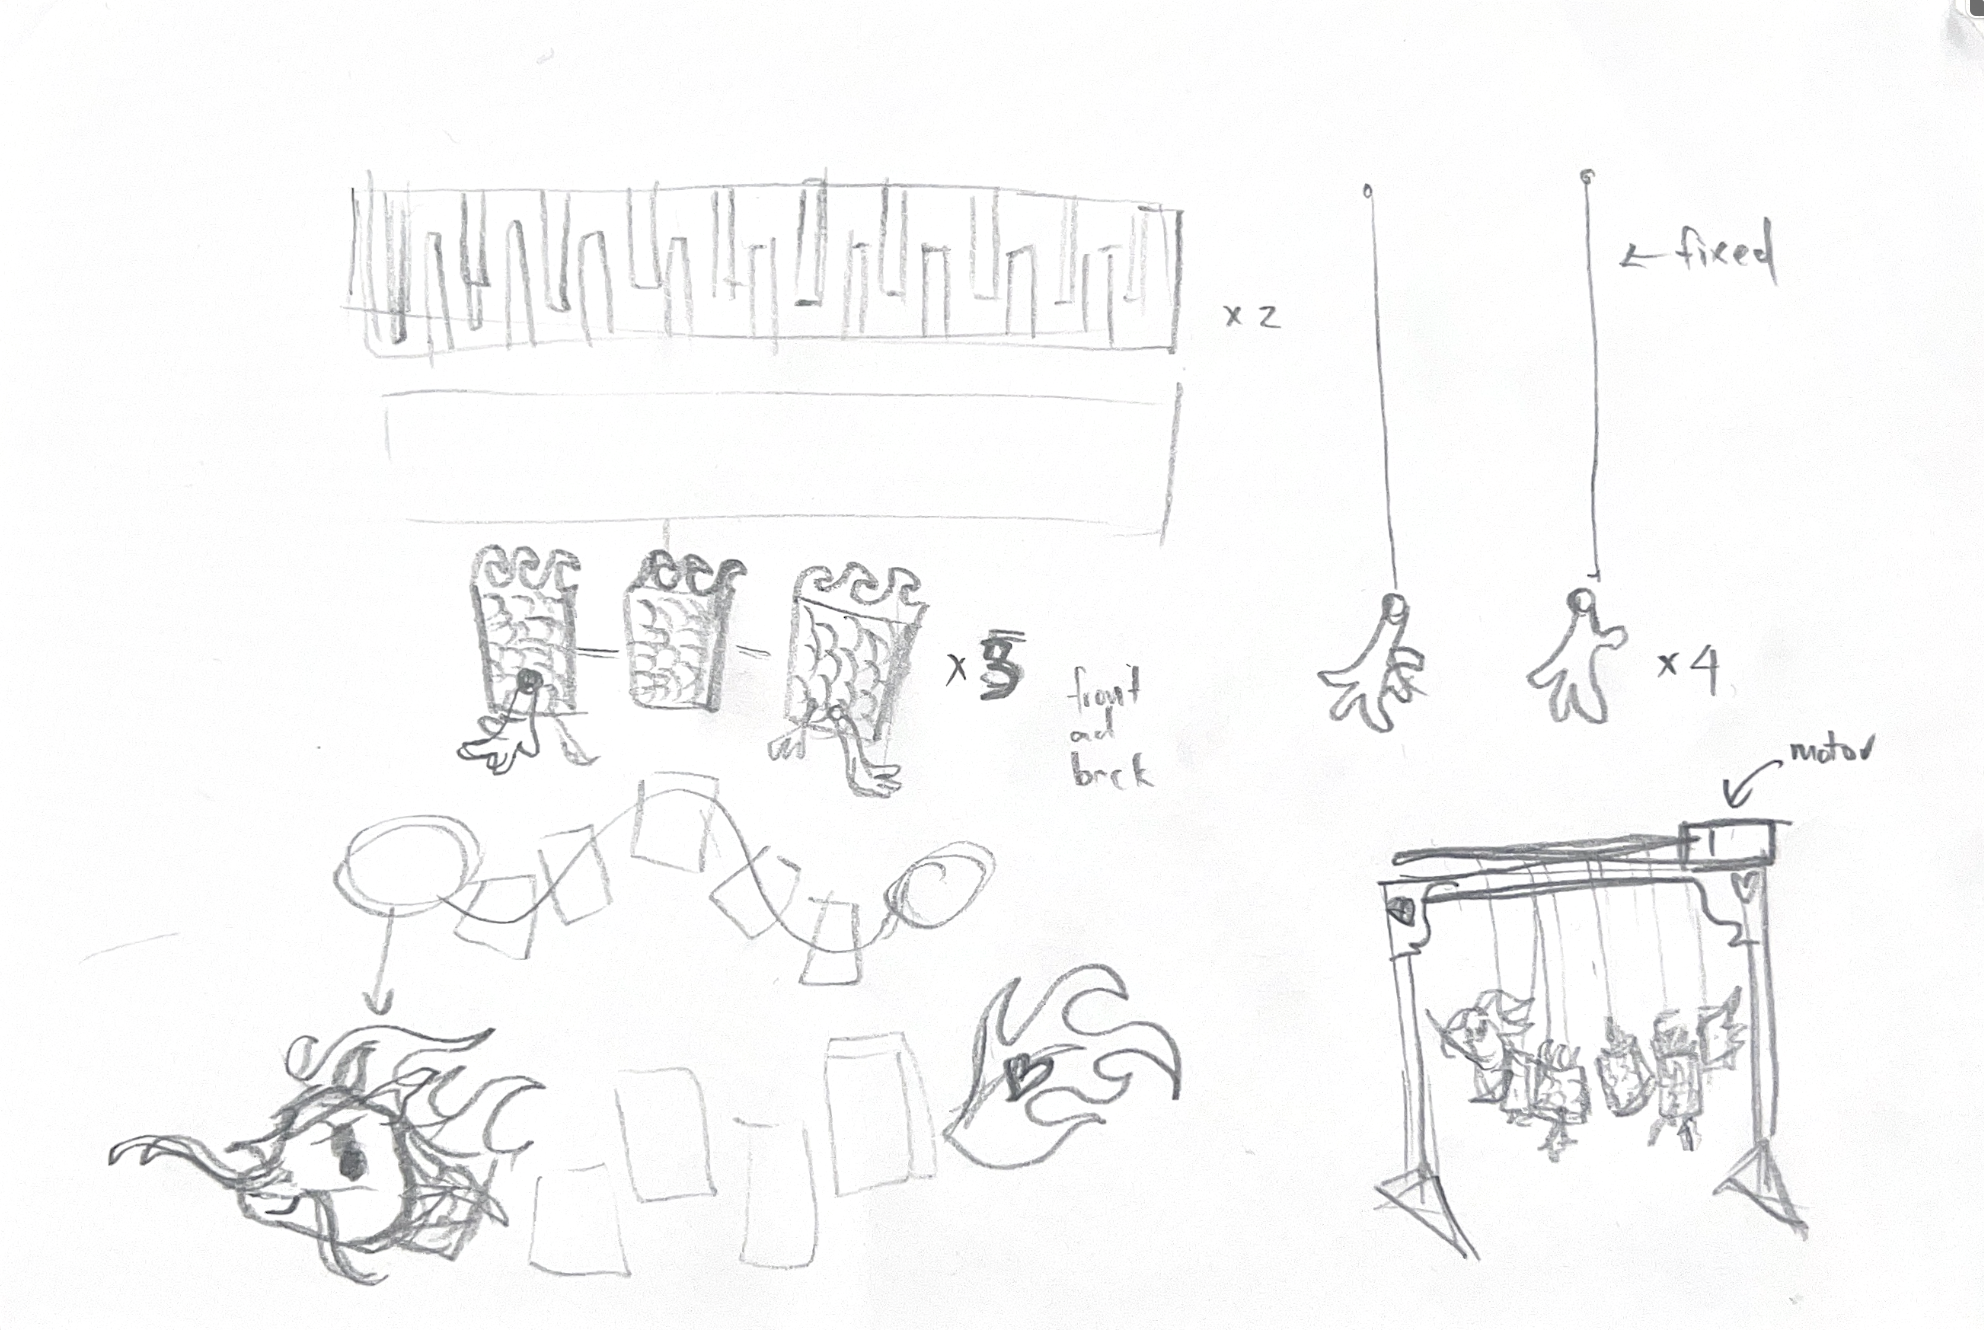 x 2
← fixed
x 4
front
ad
back
motor